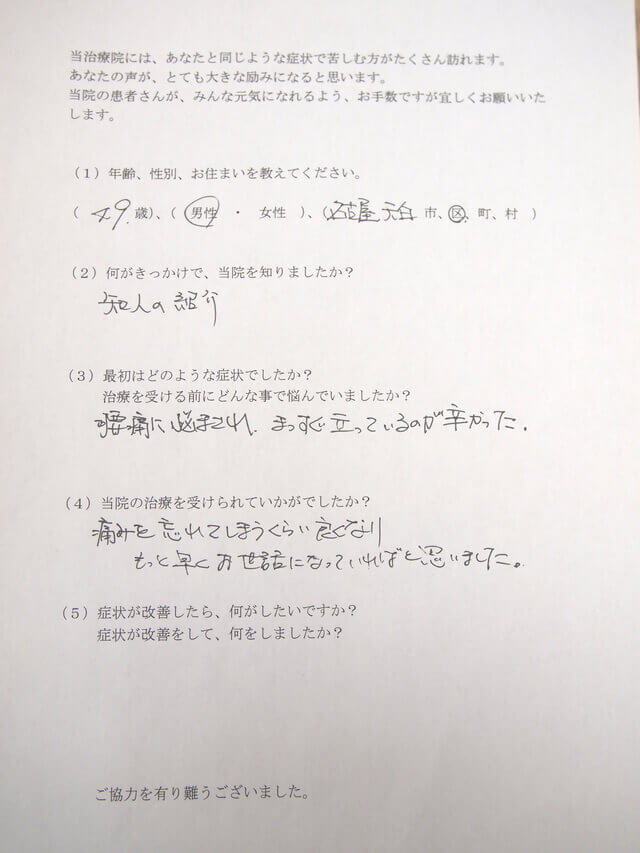 当治療院には、あなたと同じような症状で苦しむ方がたくさん訪れます。
あなたの声が、とても大きな励みになると思います。
当院の患者さんが、みんな元気になれるよう、お手数ですが宜しくお願いいた
します。
（１）年齢、性別、お住まいを教えてください。
（ 49. 歳）、（ 男性 ・ 女性 ）、（名古屋 天白 市、区、町、村 ）
（２）何がきっかけで、当院を知りましたか？
知人の紹介
（３）最初はどのような症状でしたか？
治療を受ける前にどんな事で悩んでいましたか？
腰痛に悩まされ、まっすぐ立っているのが辛かった。
（４）当院の治療を受けられていかがでしたか？
痛みを忘れてしまうくらい良くなり
もっと早くお世話になっていればと思いました。
（５）症状が改善したら、何がしたいですか？
症状が改善をして、何をしましたか？
ご協力を有り難うございました。